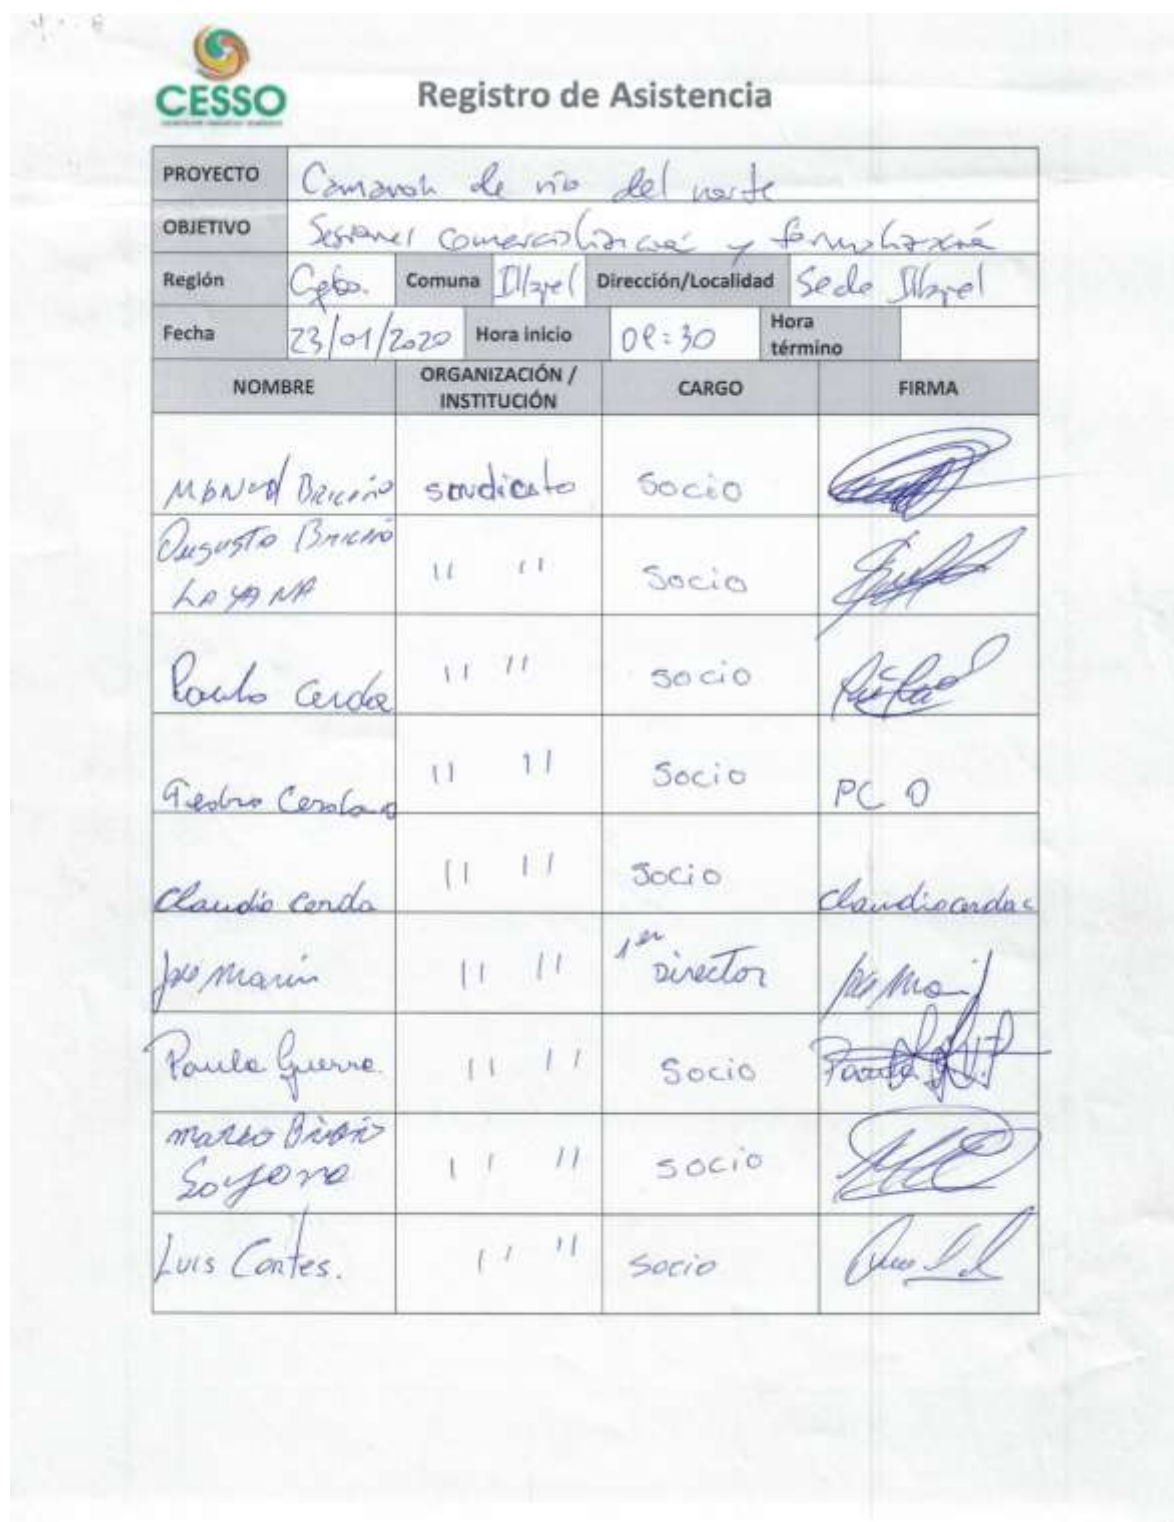 CESSO
Registro de Asistencia
PROYECTO Camaron de río del norte
OBJETIVO Sesiones comercialización y formalización
Región Cqbo. Comuna Illapel Dirección/Localidad Sede Illapel
Fecha 23/01/2020 Hora inicio 09:30 Hora término
NOMBRE ORGANIZACIÓN / INSTITUCIÓN CARGO FIRMA
Manuel Briceño sindicato Socio
Augusto Briceño
Layana 11 11 Socio
Paulo Cerda 11 11 socio
Pedro 11 11 Socio PC O
Claudio cerda 11 11 Socio claudiocerda c
Jose Marin 11 11 1er Director
Paula Guerra. 11 11 Socio Paula
marco Briceño
Layana 11 11 socio
Luis Cortes. 11 11 socio